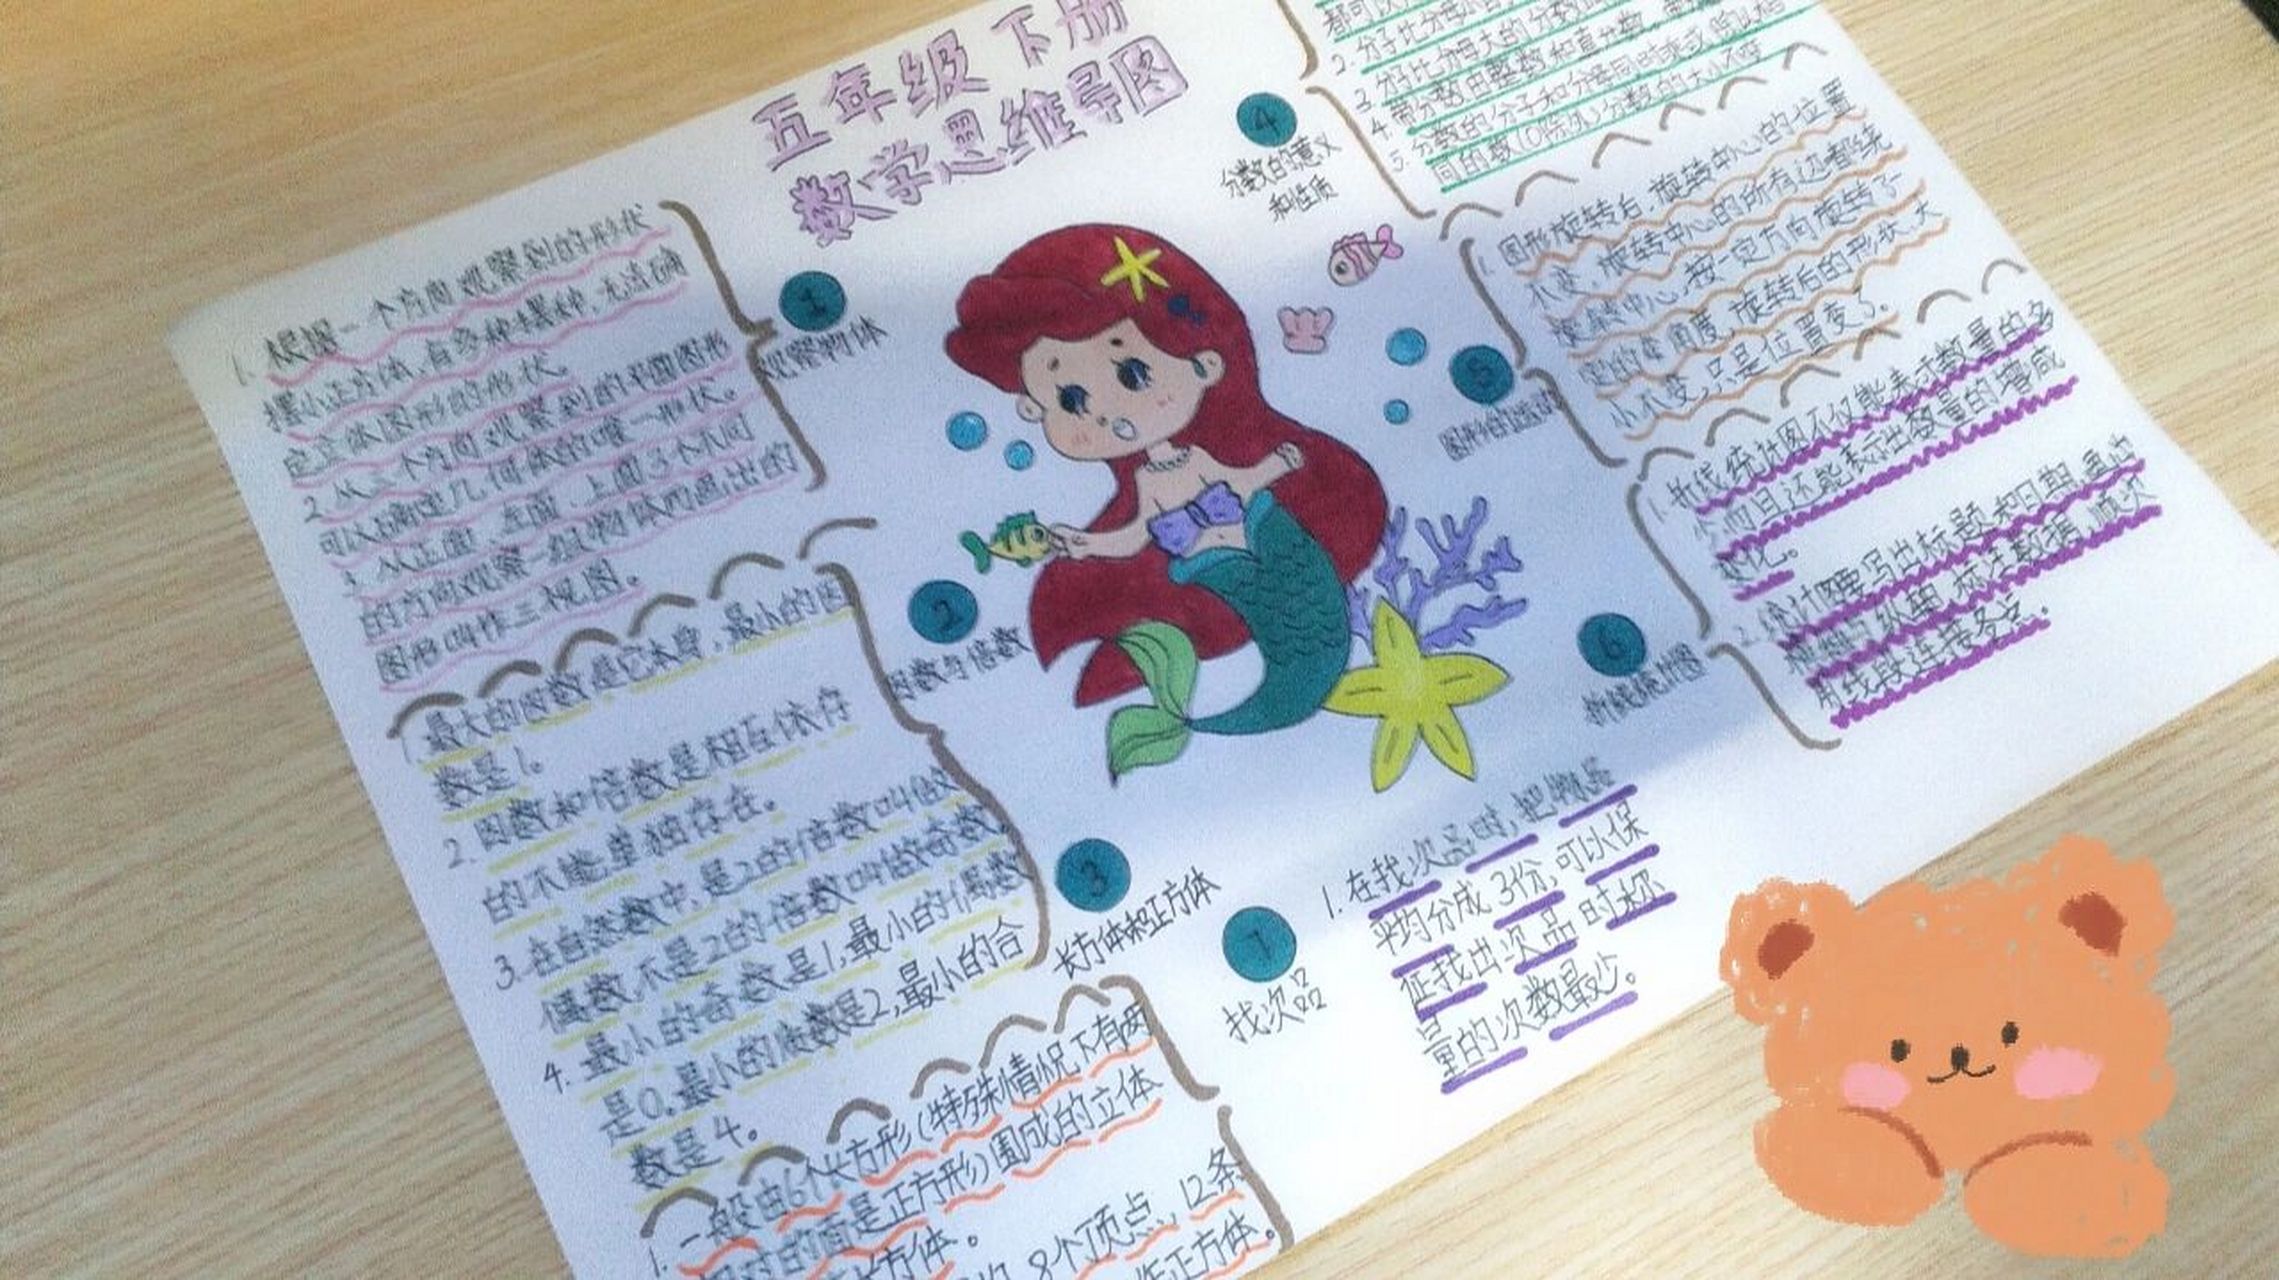 五年级下册
数学思维导图
1
观察物体
1. 根据一个方向观察到的形状
摆小正方体,有多种摆种,无法确
定立体图形的形状。
2. 从三个方向观察到的平面图形
可以确定几何体的唯一形状。
3. 从正面、左面、上面3个不同
的方向观察一组物体而画出的
图形叫作三视图。
2
因数与倍数
1. 最大的因数是它本身,最小的因
数是1。
2. 因数和倍数是相互依存
的不能单独存在。
3. 在自然数中,是2的倍数叫做
偶数,不是2的倍数叫做奇数。
4. 最小的奇数是1,最小的偶数
是0。最小的质数是2,最小的合
数是4。
3
长方体和正方体
1. 一般由6个长方形(特殊情况下有两
个相对的面是正方形)围成的立体
方体。
8个顶点,12条
作正方体。
4
分数的意义
和性质
都可以
2. 分子比分母小的
3. 分子比分母大的分数
4. 带分数由整数和真分数
5. 分数的分子和分母同时乘或除以相
同的数(0除外)分数的大小不变
5
图形的运动
1. 图形旋转后,旋转中心的位置
不变,旋转中心的所有边都绕
旋转中心,按一定方向旋转了一
定的角度,旋转后的形状、大
小不变,只是位置变了。
6
折线统计图
1. 折线统计图不仅能表示数量的多
少,而且还能表示出数量的增减
变化。
2. 统计图要写出标题和日期,画出
横轴、纵轴,标注数据,顺次
用线段连接各点。
7
找次品
1. 在找次品时,把物品
平均分成3份,可以保
征找出次品时称
量的次数最少。